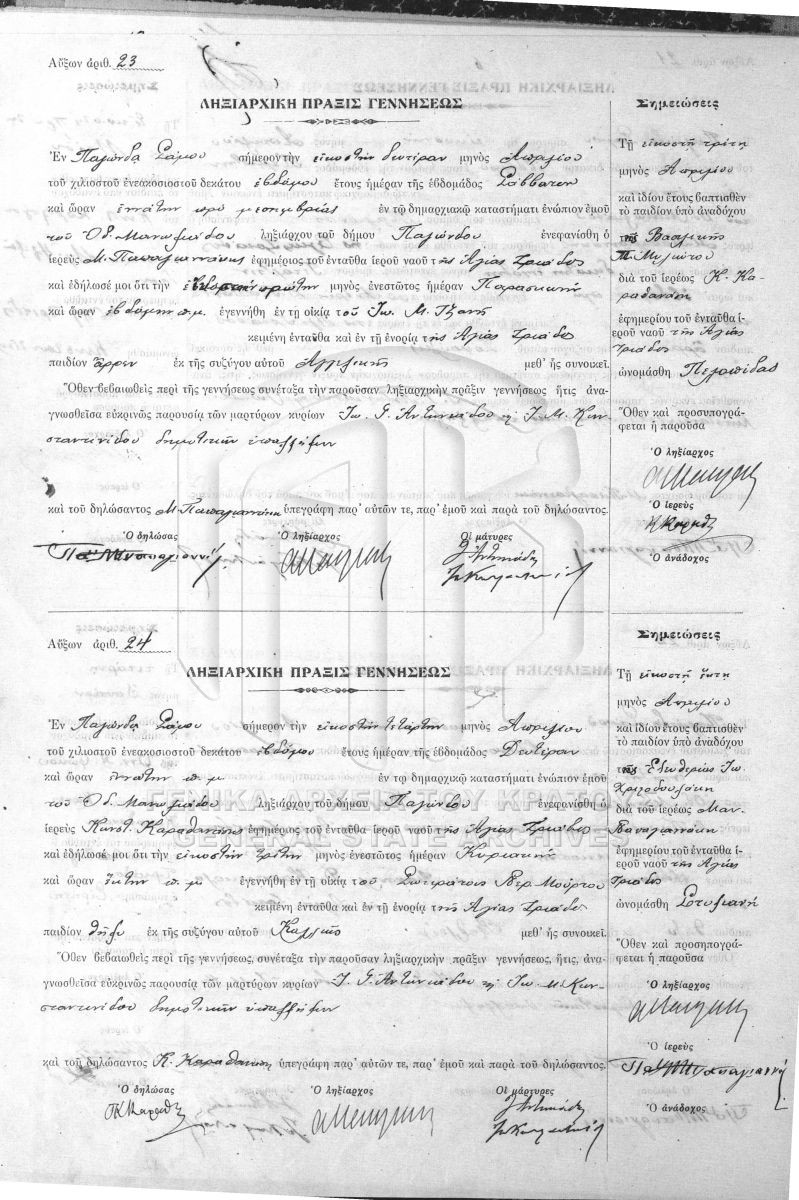 Αὔξων ἀριθ. 23
ΛΗΞΙΑΡΧΙΚΗ ΠΡΑΞΙΣ ΓΕΝΝΗΣΕΩΣ
Ἐν Παγώνδᾳ Σάμου σήμερον τὴν εἰκοστὴν δευτέραν μηνὸς Ἀπριλίου
τοῦ χιλιοστοῦ ἐνεακοσιοστοῦ δεκάτου ἑβδόμου ἔτους ἡμέραν τῆς ἑβδομάδος Σάββατον
καὶ ὥραν ἐννάτην πρὸ μεσημβρίας ἐν τῷ δημαρχιακῷ καταστήματι ἐνώπιον ἐμοῦ
τοῦ Ὀδ. ληξιάρχου τοῦ δήμου Παγώνδου ἐνεφανίσθη ὁ
ἱερεὺς Μ. Παπαγιαννάκης ἐφημέριος τοῦ ἐνταῦθα ἱεροῦ ναοῦ τῆς Ἁγίας Τριάδος
καὶ ἐδήλωσέ μοι ὅτι τὴν πρώτην μηνὸς ἐνεστῶτος ἡμέραν Παρασκευὴν
καὶ ὥραν ἑβδόμην π.μ. ἐγεννήθη ἐν τῇ οἰκίᾳ τοῦ Ἰω. Μ. Τζανῆ
κειμένῃ ἐνταῦθα καὶ ἐν τῇ ἐνορίᾳ τῆς Ἁγίας Τριάδος
παιδίον ἄρρεν ἐκ τῆς συζύγου αὐτοῦ Ἀγγελικῆς μεθ' ἧς συνοικεῖ.
Ὅθεν βεβαιωθεὶς περὶ τῆς γεννήσεως συνέταξα τὴν παροῦσαν ληξιαρχικὴν πρᾶξιν γεννήσεως ἥτις ἀνα-
γνωσθεῖσα εὐκρινῶς παρουσίᾳ τῶν μαρτύρων κυρίων Ἰω. Γ. Ἀντωνιάδου κ Ἰ. Μ. Κων-
σταντινίδου δημοτικῶν ὑπαλλήλων
καὶ τοῦ δηλώσαντος Μ. Παπαγιαννάκη ὑπεγράφη παρ' αὐτῶν τε, παρ' ἐμοῦ καὶ παρὰ τοῦ δηλώσαντος.
Ὁ δηλώσας Ὁ ληξίαρχος Οἱ μάτυρες
Σημειώσεις
Τῇ εἰκοστῇ τρίτῃ
μηνὸς Ἀπριλίου
καὶ ἰδίου ἔτους βαπτισθὲν
τὸ παιδίον ὑπὸ ἀναδόχου
τῆς Βασιλικῆς
διὰ τοῦ ἱερέως Κ. Κα-
ραθανάση
ἐφημερίου τοῦ ἐνταῦθα ἱ-
εροῦ ναοῦ τῆς Ἁγίας
Τριάδος
ὠνομάσθη Πελοπίδας
Ὅθεν καὶ προσυπογρά-
φεται ἡ παροῦσα
Ὁ ληξίαρχος
Ὁ ἱερεὺς
Ὁ ἀνάδοχος
Αὔξων ἀριθ. 24
ΛΗΞΙΑΡΧΙΚΗ ΠΡΑΞΙΣ ΓΕΝΝΗΣΕΩΣ
Ἐν Παγώνδᾳ Σάμου σήμερον τὴν εἰκοστὴν τετάρτην μηνὸς Ἀπριλίου
τοῦ χιλιοστοῦ ἐνεακοσιοστοῦ δεκάτου ἑβδόμου ἔτους ἡμέραν τῆς ἑβδομάδος Δευτέραν
καὶ ὥραν ἐννάτην π.μ. ἐν τῳ δημαρχικῷ καταστήματι ἐνώπιον ἐμοῦ
τοῦ Ὀδ. ληξιάρχου τοῦ δήμου Παγώνδου ἐνεφανίσθη ὁ
ἱερεὺς Κωνστ. Καραθανάσης ἐφημέριος τοῦ ἐνταῦθα ἱεροῦ ναοῦ τῆς Ἁγίας Τριάδος
καὶ ἐδήλωσέ μοι ὅτι τὴν εἰκοστὴν τρίτην μηνὸς ἐνεστῶτος ἡμέραν Κυριακὴν
καὶ ὥραν ἕκτην π.μ. ἐγεννήθη ἐν τῇ οἰκίᾳ τοῦ
κειμένῃ ἐνταῦθα καὶ ἐν τῇ ἐνορίᾳ τῆς Ἁγίας Τριάδος
παιδίον θῆλυ ἐκ τῆς συζύγου αὐτοῦ μεθ' ἧς συνοικεῖ.
Ὅθεν βεβαιωθεὶς περὶ τῆς γεννήσεως, συνέταξα τὴν παροῦσαν ληξιαρχικὴν πρᾶξιν γεννήσεως, ἥτις, ἀνα-
γνωσθεῖσα εὐκρινῶς παρουσίᾳ τῶν μαρτύρων κυρίων Ἰ. Γ. Ἀντωνιάδου κ Ἰω. Μ. Κων-
σταντινίδου δημοτικῶν ὑπαλλήλων
καὶ τοῦ δηλώσαντος Κ. Καραθανάση ὑπεγράφη παρ' αὐτῶν τε, παρ' ἐμοῦ καὶ παρὰ τοῦ δηλώσαντος.
Ὁ δηλώσας Ὁ ληξίαρχος Οἱ μάρτυρες
Σημειώσεις
Τῇ εἰκοστῇ ἕκτῃ
μηνὸς Ἀπριλίου
καὶ ἰδίου ἔτους βαπτισθὲν
τὸ παιδίον ὑπὸ ἀναδόχου
τῆς Ἐλευθερίας Ἰω.
διὰ τοῦ ἱερέως Μαν.
Παπαγιαννάκη
ἐφημερίου τοῦ ἐνταῦθα ἱ-
εροῦ ναοῦ τῆς Ἁγίας
Τριάδος
ὠνομάσθη Στυλιανὴ
Ὅθεν καὶ προσηπογρά-
φεται ἡ παροῦσα
Ὁ ληξίαρχος
Ὁ ἱερεὺς
Ὁ ἀνάδοχος
ΓΕΝΙΚΑ ΑΡΧΕΙΑ ΤΟΥ ΚΡΑΤΟΥΣ
GENERAL STATE ARCHIVES